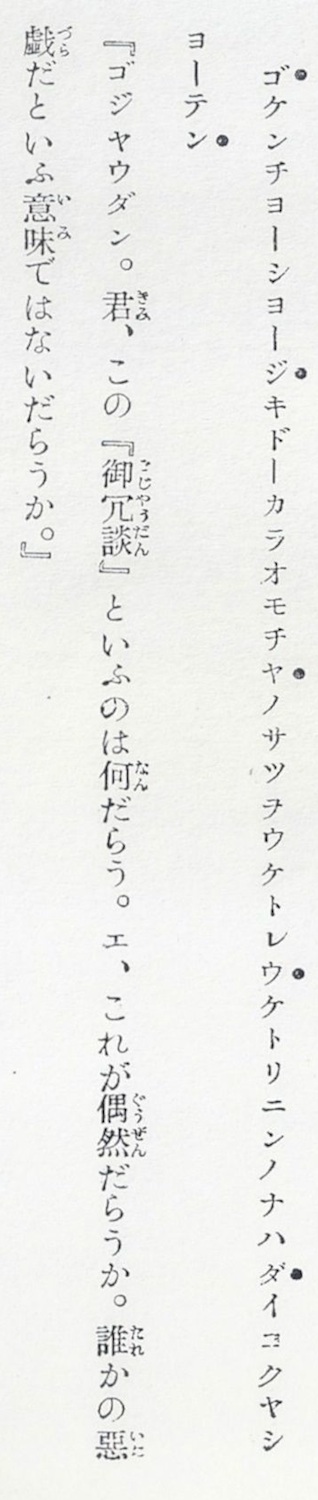 ゴケンチヨーシヨージキドーカラオモチヤノサツヲウケトレウケトリニンノナハダイコクヤシ
ヨーテン
『ゴジヤウダン。君、この『御冗談』といふのは何だらう。エ、これが偶然だらうか。誰かの惡
戯だといふ意味ではないだらうか。』